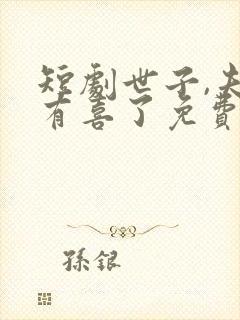 短劇世子,夫
有喜了免費
孫銀